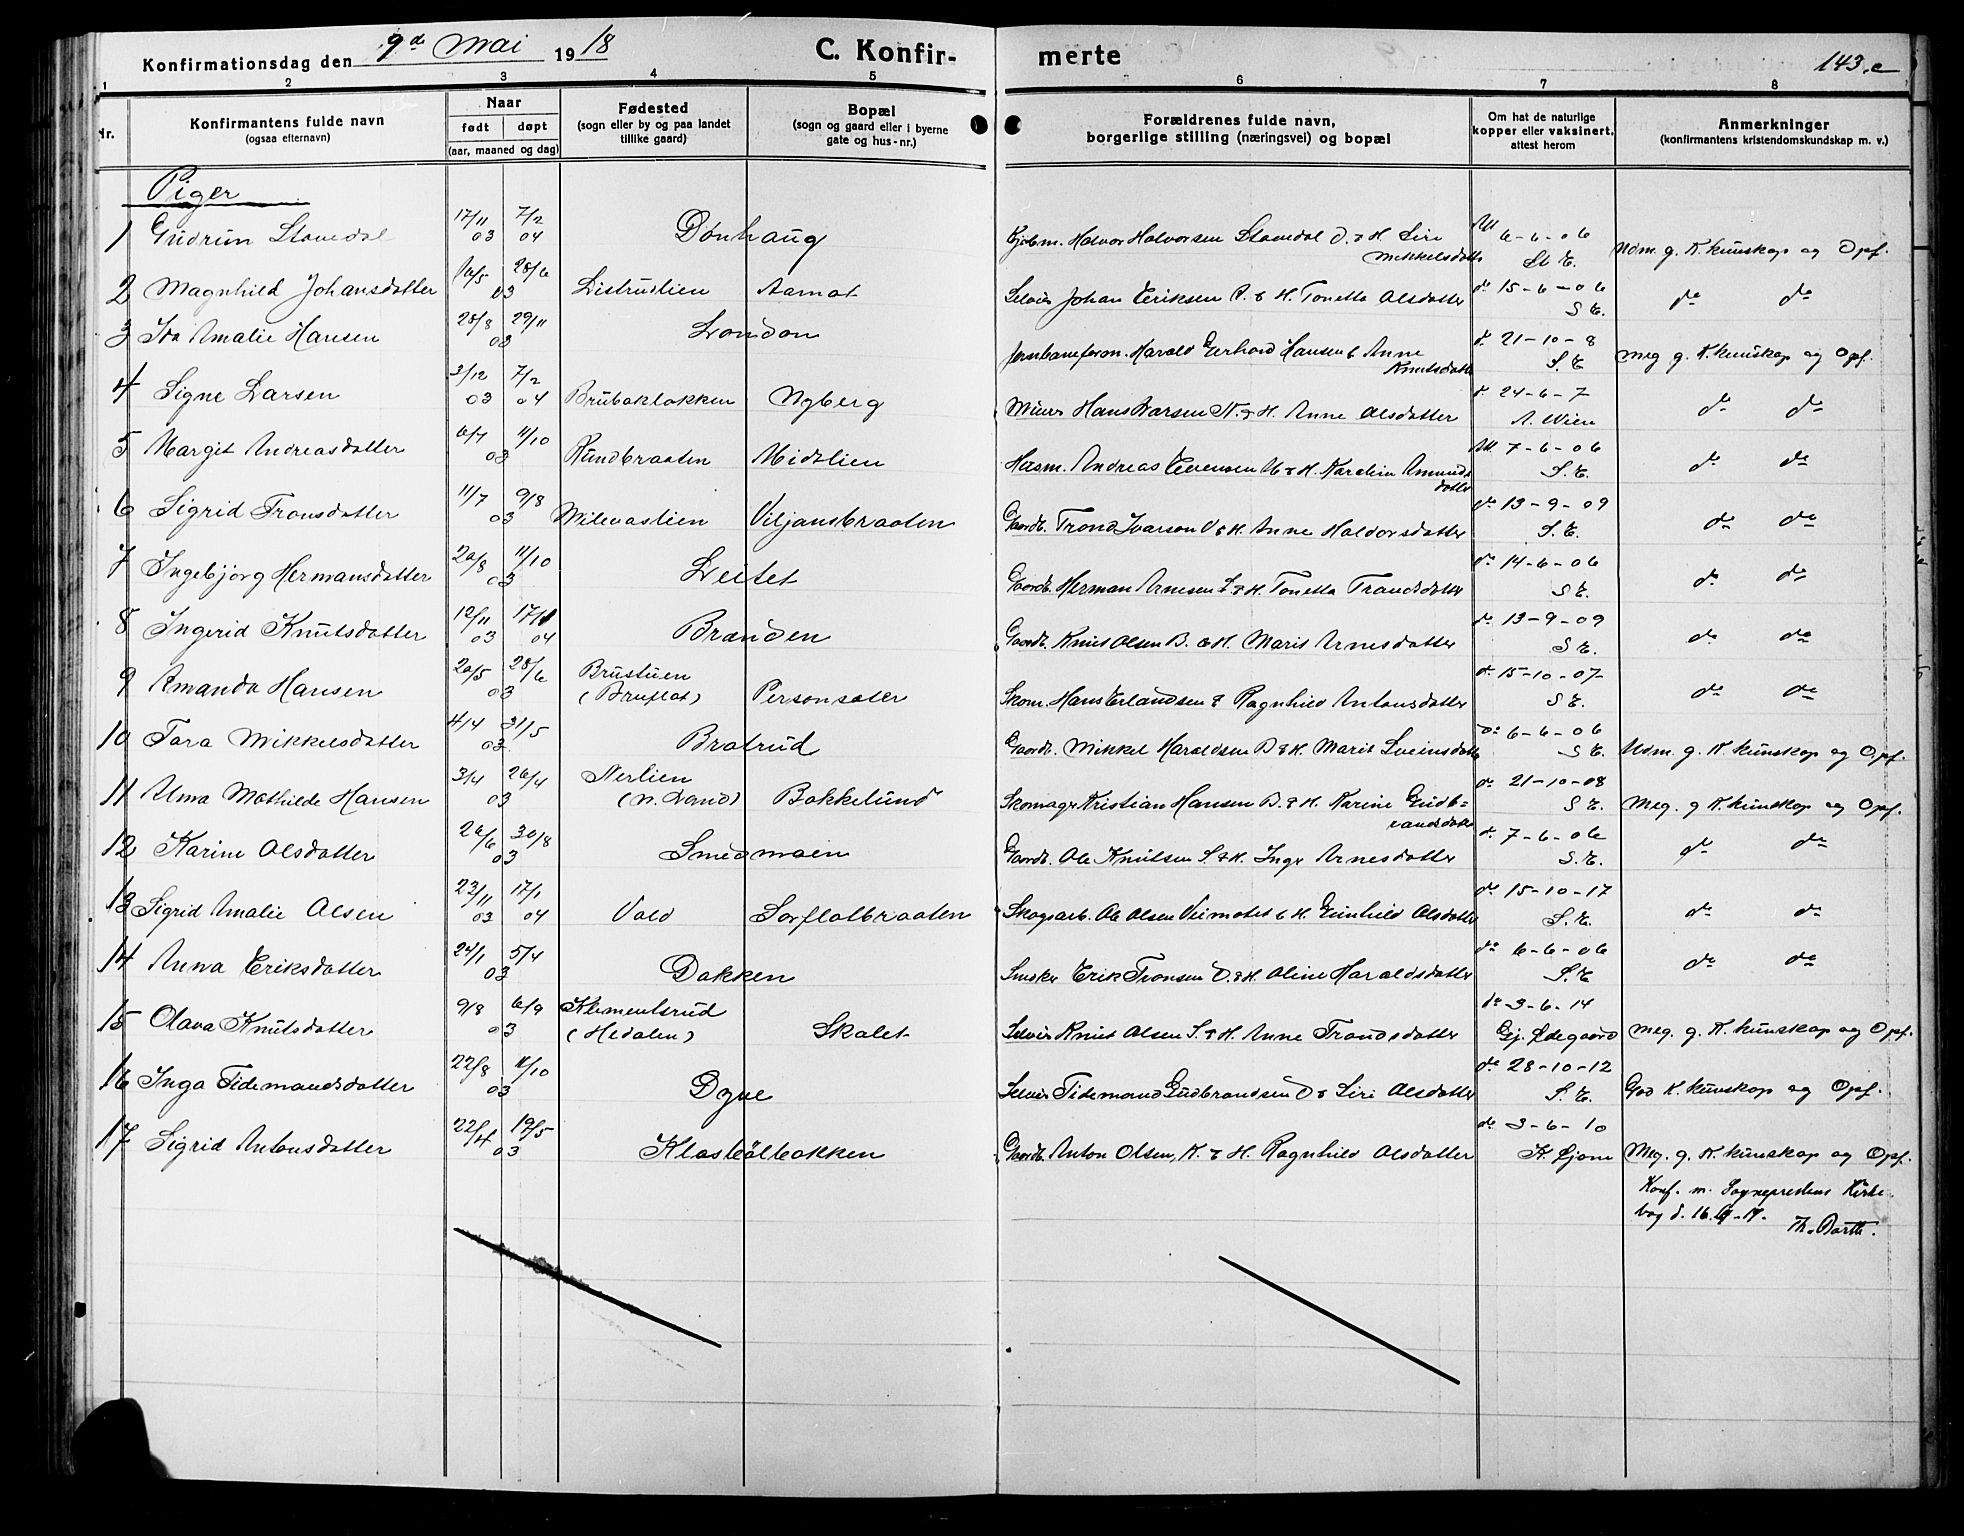 Konfirmationsdag den 9de mai 1918 C. Konfir- merte 143.c
1 2 3 4 5 6 7 8
Nr.
Konfirmantens fulde navn
(ogsaa efternavn)
Naar
født døpt
(aar, maaned og dag)
Fødested
(sogn eller by og paa landet
tillike gaard)
Bopæl
(sogn og gaard eller i byerne
gate og hus-nr.)
Forældrenes fulde navn,
borgerlige stilling (næringsvei) og bopæl
Om hat de naturlige
kopper eller vaksinert,
attest herom
Anmerkninger
(konfirmantens kristendomskundskap m. v.)
Piger
1 Gudrun Stavedal 17/11 03 7/2 04 Dønhaug Halvor Halvorsen Stavedal D. & H. Siri Mikkelsdatter Att 6-6-06 St E. Udm. g. K. kunskap og Opf.
2 Magnhild Johansdatter 16/5 28/6 03 Listrudlien Aamot Selveier Johan Eriksen A. & H. Tonetta Olsdatter do 15-6-06 S E. do do
3 Ida Amalie Hansen 28/8 29/11 03 London Jernbaneform. Harald Gerhard Hansen & Anne Knutsdatter d. 21-10-8 S. E. Meg g. K. kunskap og Opf.
4 Signe Larsen 3/12 03 7/2 04 Brubakløkken Nyberg Minør Hans Larsen N. & H. Anne Olsdatter d. 24-6-7 A. Wien do do
5 Margit Andreasdatter 6/7 11/10 03 Rundbraaten Midtlien Husm. Andreas Evensen M & H. Karoline Amundsdatter Att. 7-6-06 S. E. do do
6 Sigrid Tronsdatter 11/7 9/8 03 Viljansbraaten Gaardb. Trond Ivarson V & H. Anne Haldorsdatter do 13-9-09 S. E. do do
7 Ingebjørg Hermansdatter 20/8 11/10 03 Leitet Gaardb. Herman Arnesen L & H. Tonetta Trondsdatter do 14-6-06 S E. do do
8 Ingerid Knutsdatter 12/11 03 17/1 04 Branden Gaardb. Knut Olsen B. & H. Marit Arnesdatter do 13-9-09 S E. do do
9 Amanda Hansen 20/5 28/6 03 Brustuen (Bruflat) Personsæter Skom. Hans Erlandsen & Ragnhild Antonsdatter d. 15-10-07 S E. do do
10 Tora Mikkelsdatter 4/4 31/5 03 Bratrud Gaardb. Mikkel Haraldsen B & H. Marit Sveinsdatter do 6-6-06 S E. Udm. g. K. kunskap og Opf.
11 Alma Mathilde Hansen 3/4 26/4 03 Nerlien (N. Land) Bakkelund Skomager Kristian Hansen B. & H. Karine Gudbrandsdatter do 21-10-08 S E. Meg. g K. kunskap og Opf.
12 Karine Olsdatter 26/6 30/8 03 Smedmoen Gaardb. Ole Knutsen S. & H. Inger Arnesdatter d. 7-6-06 S. E. do do
13 Sigrid Amalie Olsen 23/11 03 17/1 04 Vold Sørflatbraaten Skogsarb. Ole Olsen Veimotet & H. Gunhild Olsdatter do 15-10-17 S. E. do do
14 Anna Eriksdatter 24/1 5/4 03 Dokken Snekker Erik Tronsen D. & H. Oline Haraldsdatter do 6-6-06 S. E do do
15 Olava Knutsdatter 9/8 6/9 03 Klementsrud (Hedalen) Skolet Selveier Knut Olsen S. & H. Anne Trondsdatter do 3-6-14 Gj. Ødegaard Meg. g. K. kunskap og Opf.
16 Inga Tidemandsdatter 22/8 11/10 03 Dyve Selveier Tidemand Gudbrandsen D & Siri Olsdatter do 28-10-12 S. E. God K. kunskap og Opf.
17 Sigrid Antonsdatter 22/4 19/5 03 Klosbølbakken Gaardb. Anton Olsen, K. & H. Ragnhild Olsdatter do 3-6-10 Meg. g. K. kunskap og Opf.
Konf. m. Sogneprestens Kirke
bog d. 16.
Th. Barth.